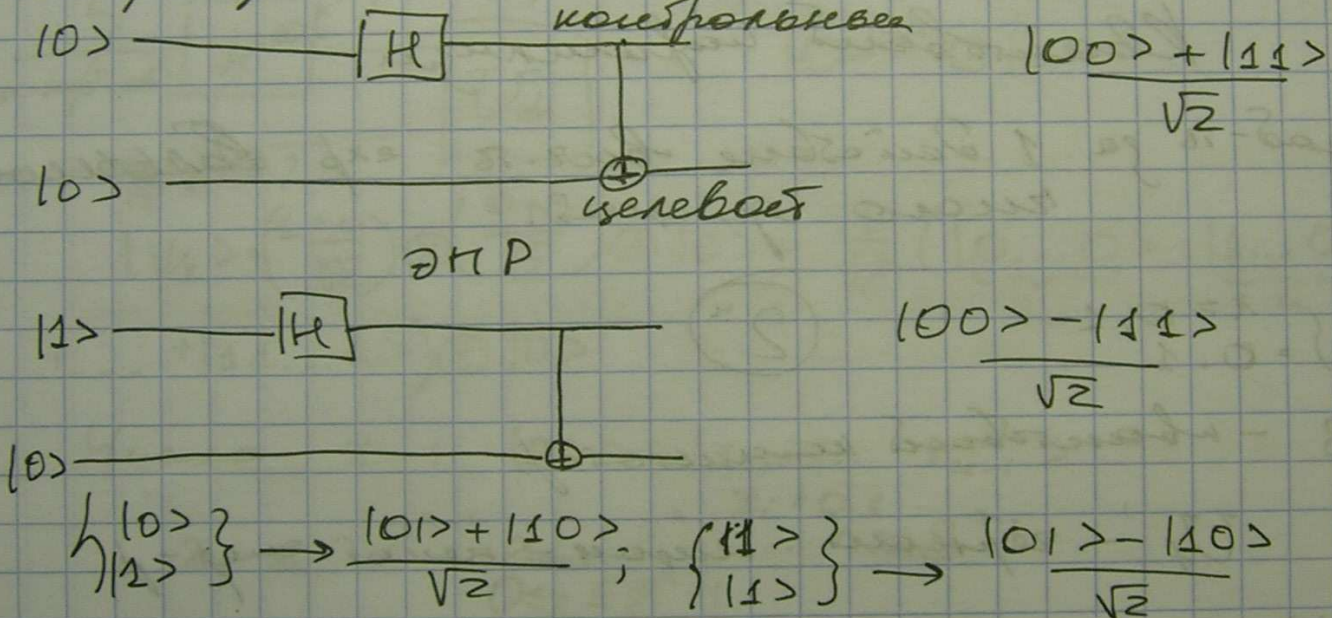 контрольный
|0> H |00> + |11>
√2
|0> ⊕
целевой
ЭПР
|1> H |00> - |11>
√2
|0> ⊕
{|0> |1>} → |01> + |10> / √2 ; {|1> |1>} → |01> - |10> / √2